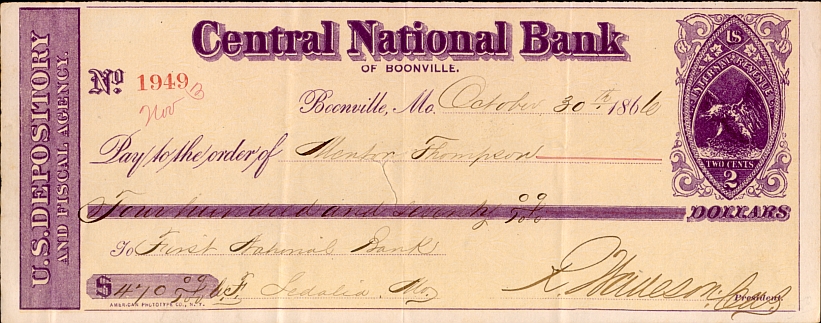 U.S. DEPOSITORY
AND FISCAL AGENCY.
Central National Bank
OF BOONVILLE.
No 1949
Nov
Boonville, Mo. October 30th 1866
Pay to the order of Mentor Thompson
Four hundred and seventy 00/100 DOLLARS
To First National Bank
$470 00/100 Sedalia Mo
President.
AMERICAN PHOTOTYPE CO., N.Y.
US
INTER. REVENUE
TWO CENTS
2